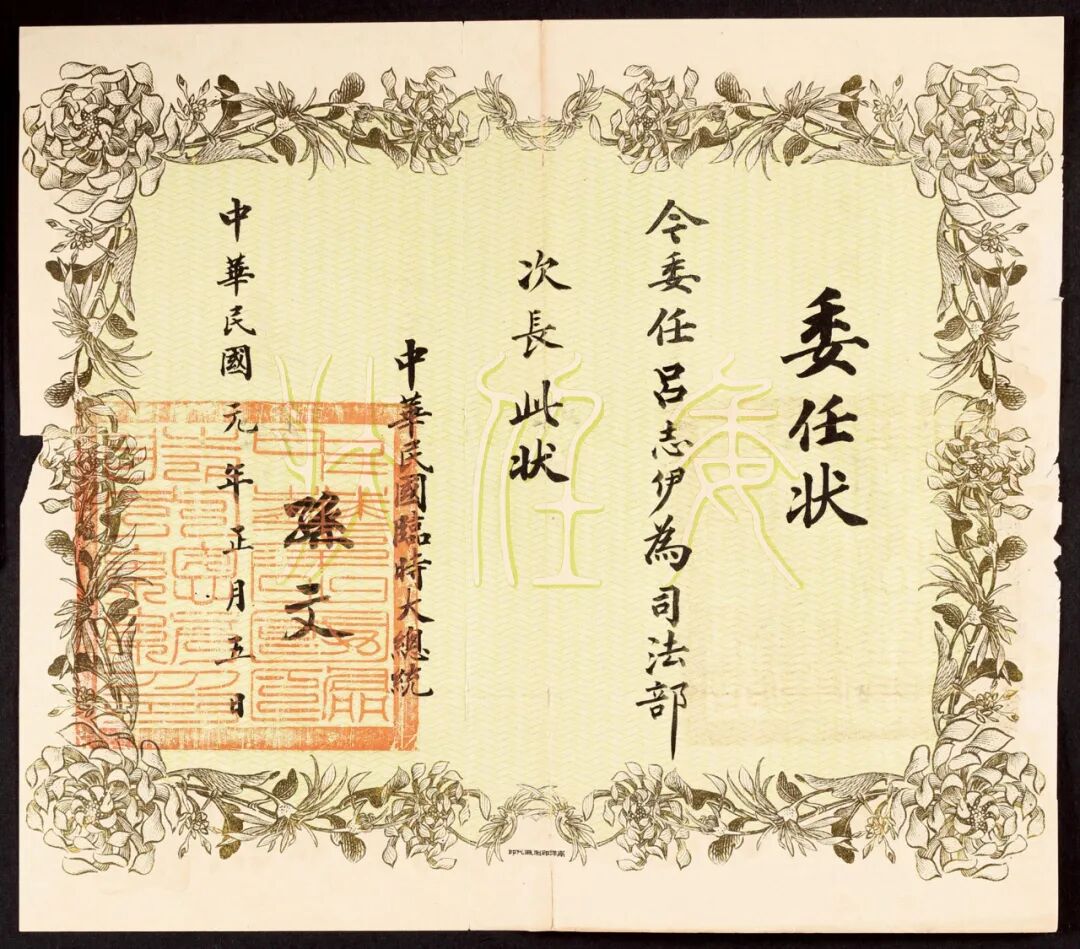 委任状
令委任呂志伊為司法部
次長此状
中華民國臨時大總統
孫文
中華民國元年正月五日
委任狀